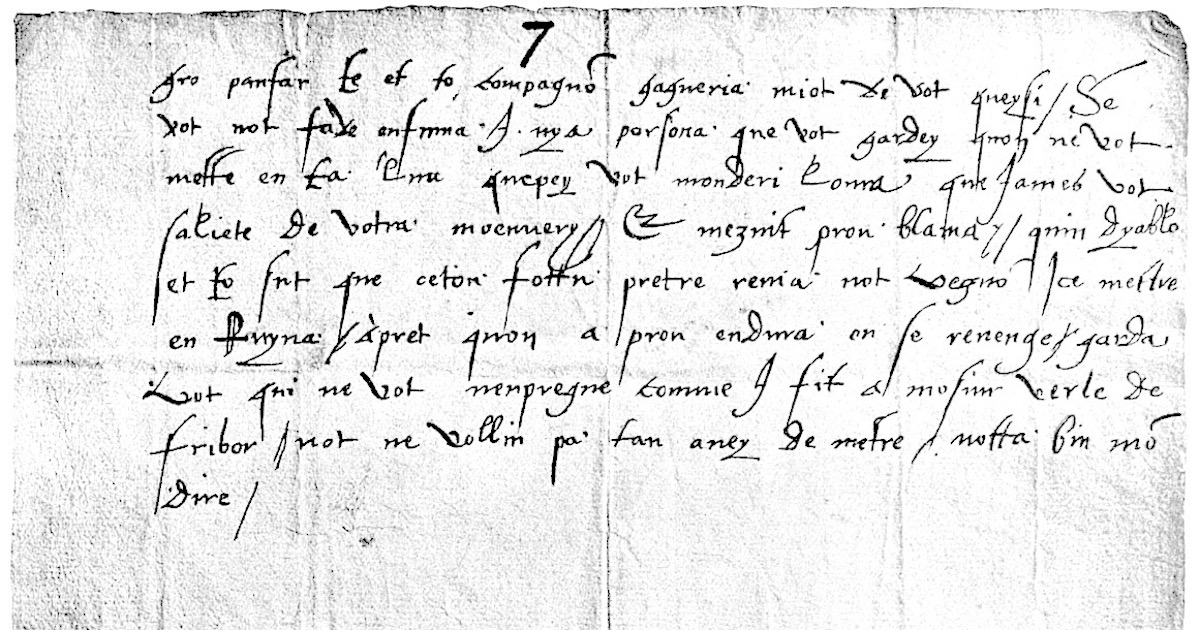 7
gro panfar te et to compagnō gagneria miot de vot queysi / Se
vot not fade enfuma. I. nya persona que vot gardey quon ne vot
mette en ta lnu quepey vot monderi Loura que James vot
saliete de votra moennery // Et mezuit pron blama // quin dyablo
et to sut que ceton fottu pretre renia not vegnō Ice mettre
en Ruyna / Apret quon a pron endura on se revenge / garda
vot qui ne vot nenpregne comme I fit a mosiur verle de
fribor // not ne vollin pa tan avey de metre / notta bin mō
dire /